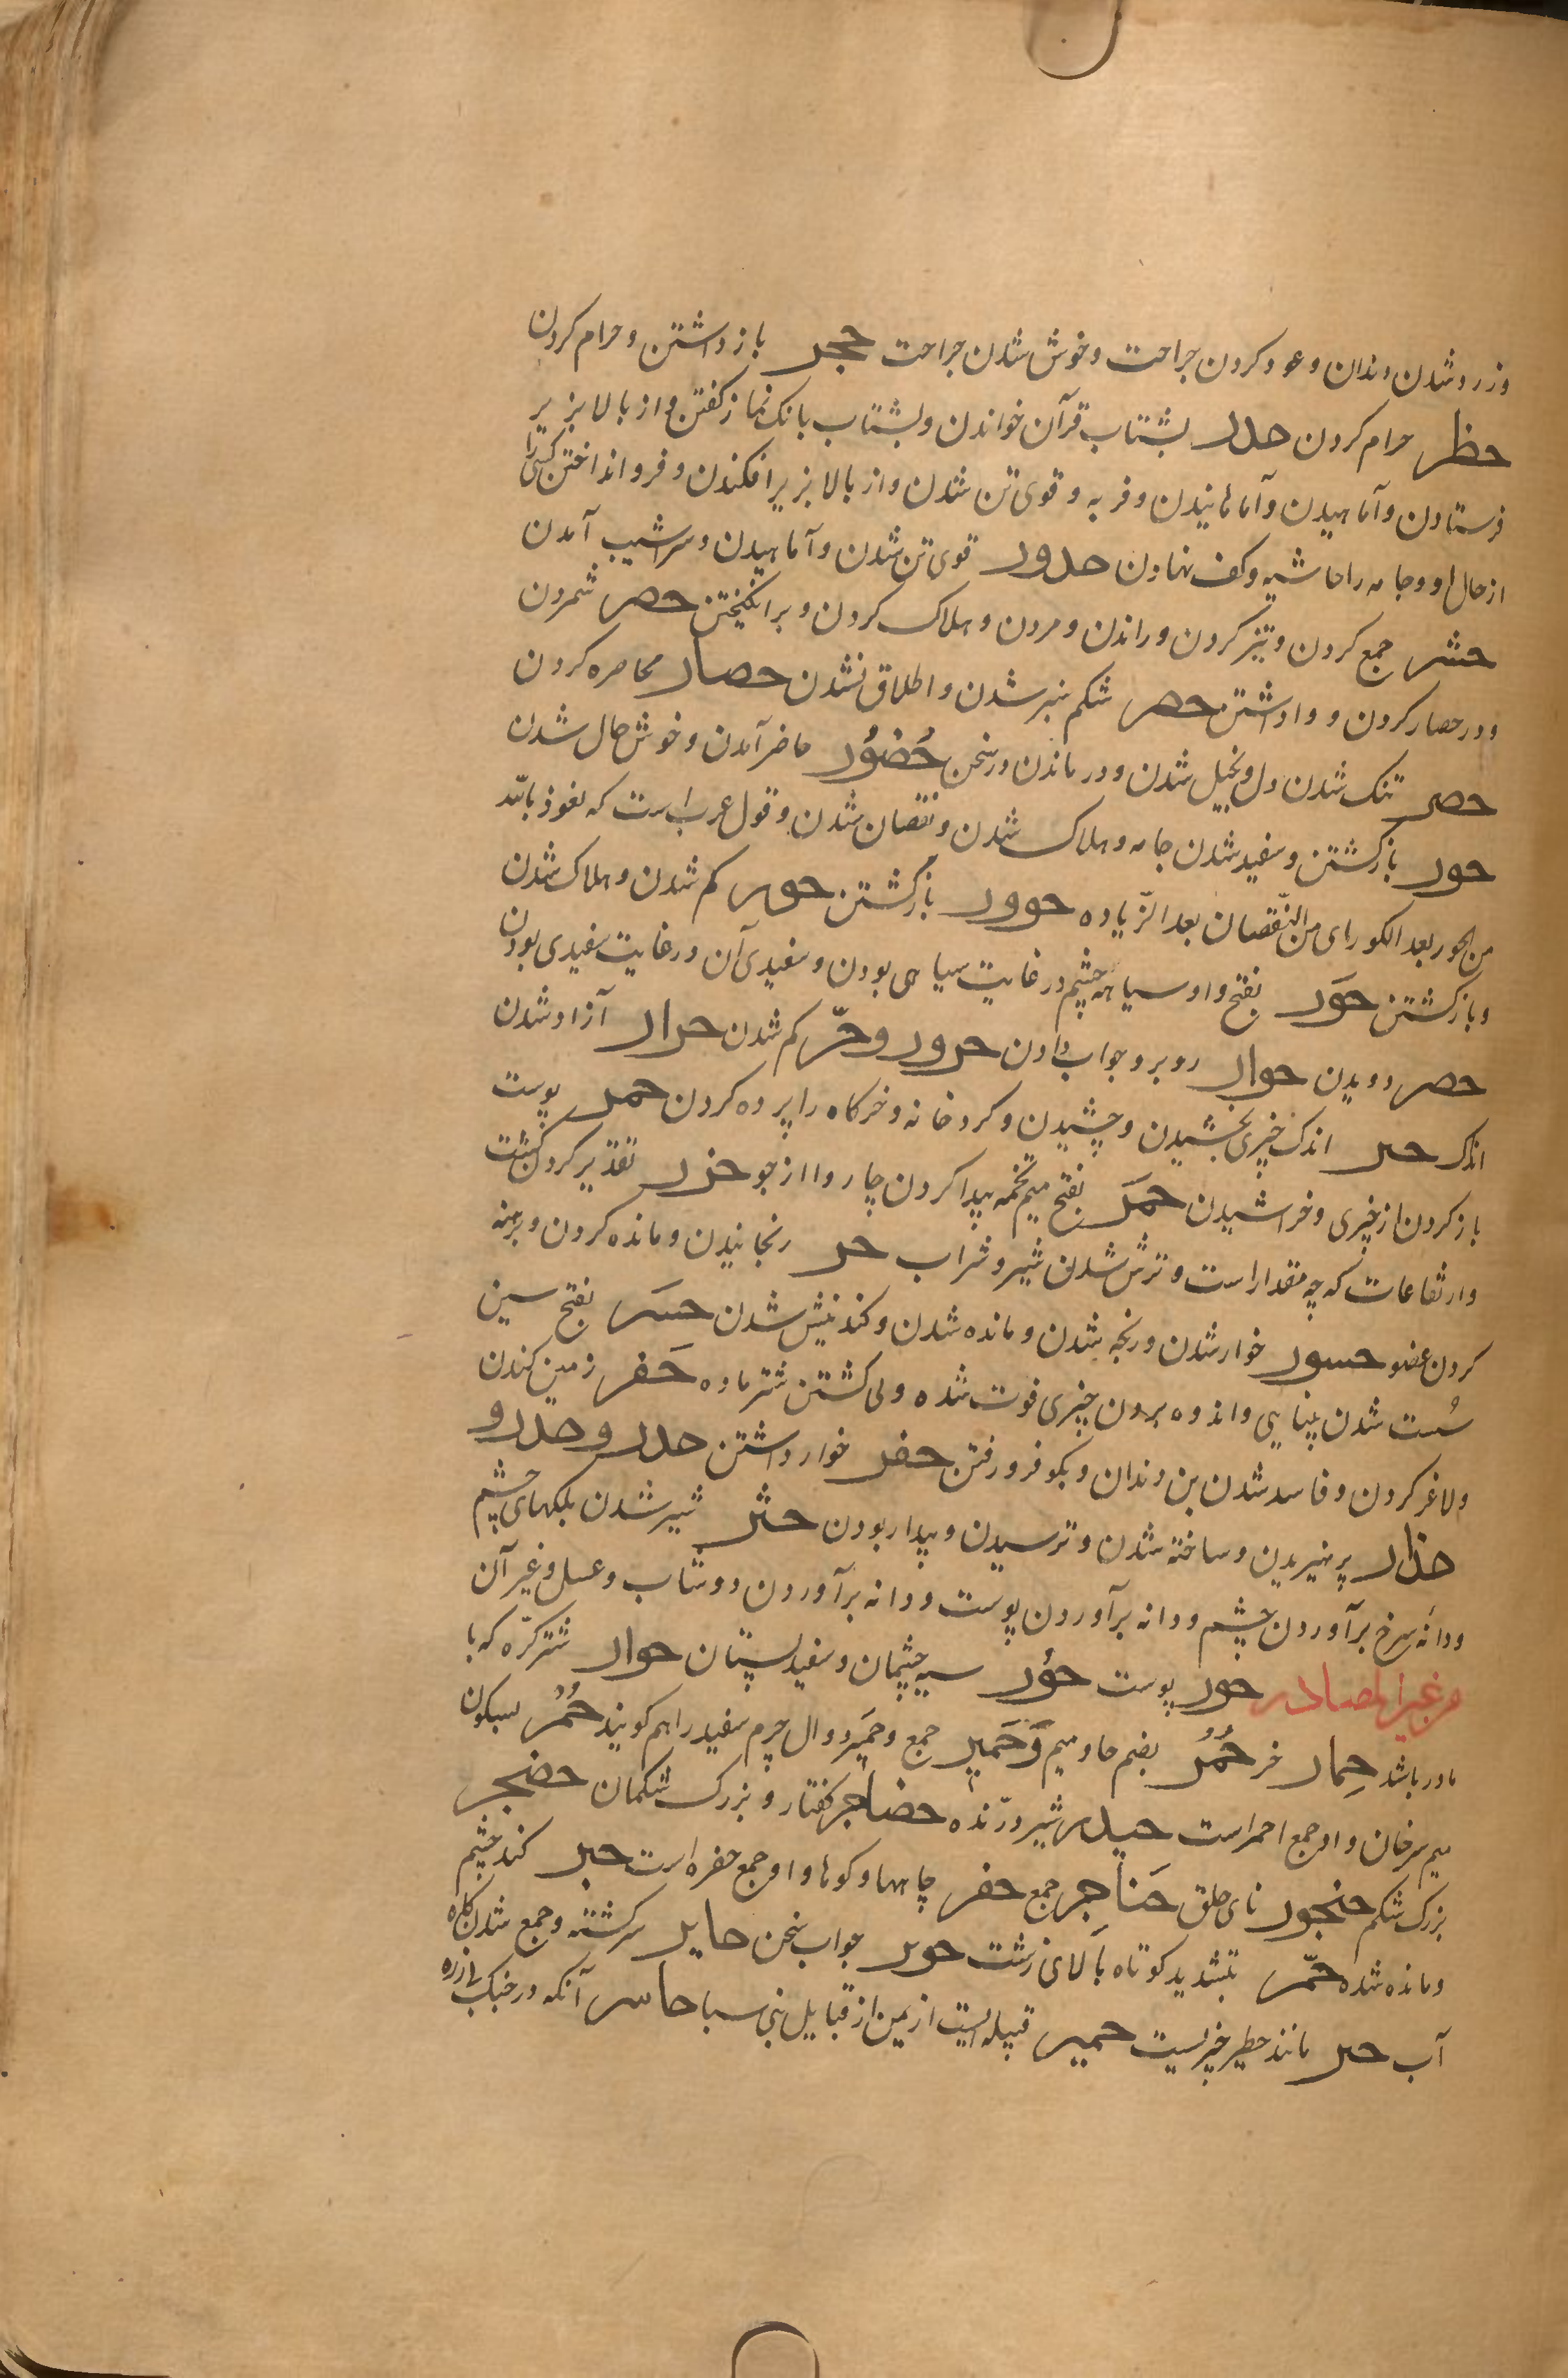 وزرد شدن دندان و عود کردن جراحت و خوش شدن جراحت حجر باز داشتن و حرام کردن
حظر حرام کردن حدر بشتاب قرآن خواندن و بشتاب بانک نماز کفتن و از بالا بزیر
فرستادن و آماهیدن و آماهانیدن و فربه و قوی تن شدن و از بالا بزیر افکندن و فرو انداختن کسی را
از حال او و جامه را حاشیه و کف نهادن حدور قوی تن شدن و آماهیدن و سراشیب آمدن
حشر جمع کردن و تیز کردن و راندن و مردن و هلاک کردن و برانکیختن حصر شمردن
و در حصار کردن و واداشتن حصر شکم نبر شدن و اطلاق نشدن حصار محاصره کردن
حصر تنک شدن دل و بخیل شدن و در ماندن در سخن حُضُور حاضر آمدن و خوش حال شدن
حور بازکشتن و سفید شدن جامه و هلاک شدن و نقصان شدن و قول عرب است که نعوذ بالله
من الحور بعد الکور ای من النّقصان بعد الزّیاده حوور بازکشتن حور کم شدن و هلاک شدن
و بازکشتن حَوَر بفتح واو سیاهه چشم در غایت سیاهی بودن و سفیدی آن در غایت سفیدی بودن
حصر دویدن حوار روبرو جواب دادن حرور و حرّ کم شدن حرار آزاد شدن
اندک حتر اندک چیزی بخشیدن و چشیدن و کرد خانه و خرکاه را پرده کردن حمر پوست
باز کردن از چیزی و خراشیدن حمَر بفتح میم تخمه پیدا کردن چاروا از جو حزر تقدیر کردن کشت
و ارتفاعات که چه مقدار است و ترش شدن شیر و شراب حسر رنجانیدن و مانده کردن و برهنه
کردن عضو حسور خوار شدن و رنجه شدن و مانده شدن و کند بینش شدن حسَر بفتح سین
سُست شدن بینایی و اندوه بردن چیزی فوت شده و لی کشتن شتر ماده حَفر زمین کندن
و لاغر کردن و فاسد شدن بن دندان و بکو فرو رفتن حقر خوار داشتن حدر و حذر و
حذار پرهیزیدن و ساخته شدن و ترسیدن و بیدار بودن حثر شیر شدن بلکهای چشم
و دانهٔ سرخ برآوردن چشم و دانه برآوردن پوست و دانه برآوردن دوشاب و عسل و غیر آن
من غیر المصادر حور پوست حوُر سیه چشمان و سفید پستان حوار شترکرّه که با
مادر باشد حِمار خر حُمُر بضم حا و میم وَحَمیر جمع و حَمیر دوال چرم سفید را هم کویند حُمْر بسکون
میم سرخان و او جمع احمر است حیدر شیر درّنده حضاجر کفتار و بزرک شکمان حضجر
بزرک شکم حنجور نای حلق حَناجِر جمع حفر چاهها و کوها و او جمع حفره است حسر کند چشم
و مانده شده حمّر بتشدید کوتاه بالای زشت حویر جواب سخن حایر سرکشته و جمع شدن کاه
آب حتر مانند حطیر چیزیست حمیر قبیله ایست از یمن از قبایل بنی سبا حاسر آنکه در جنک بی زره